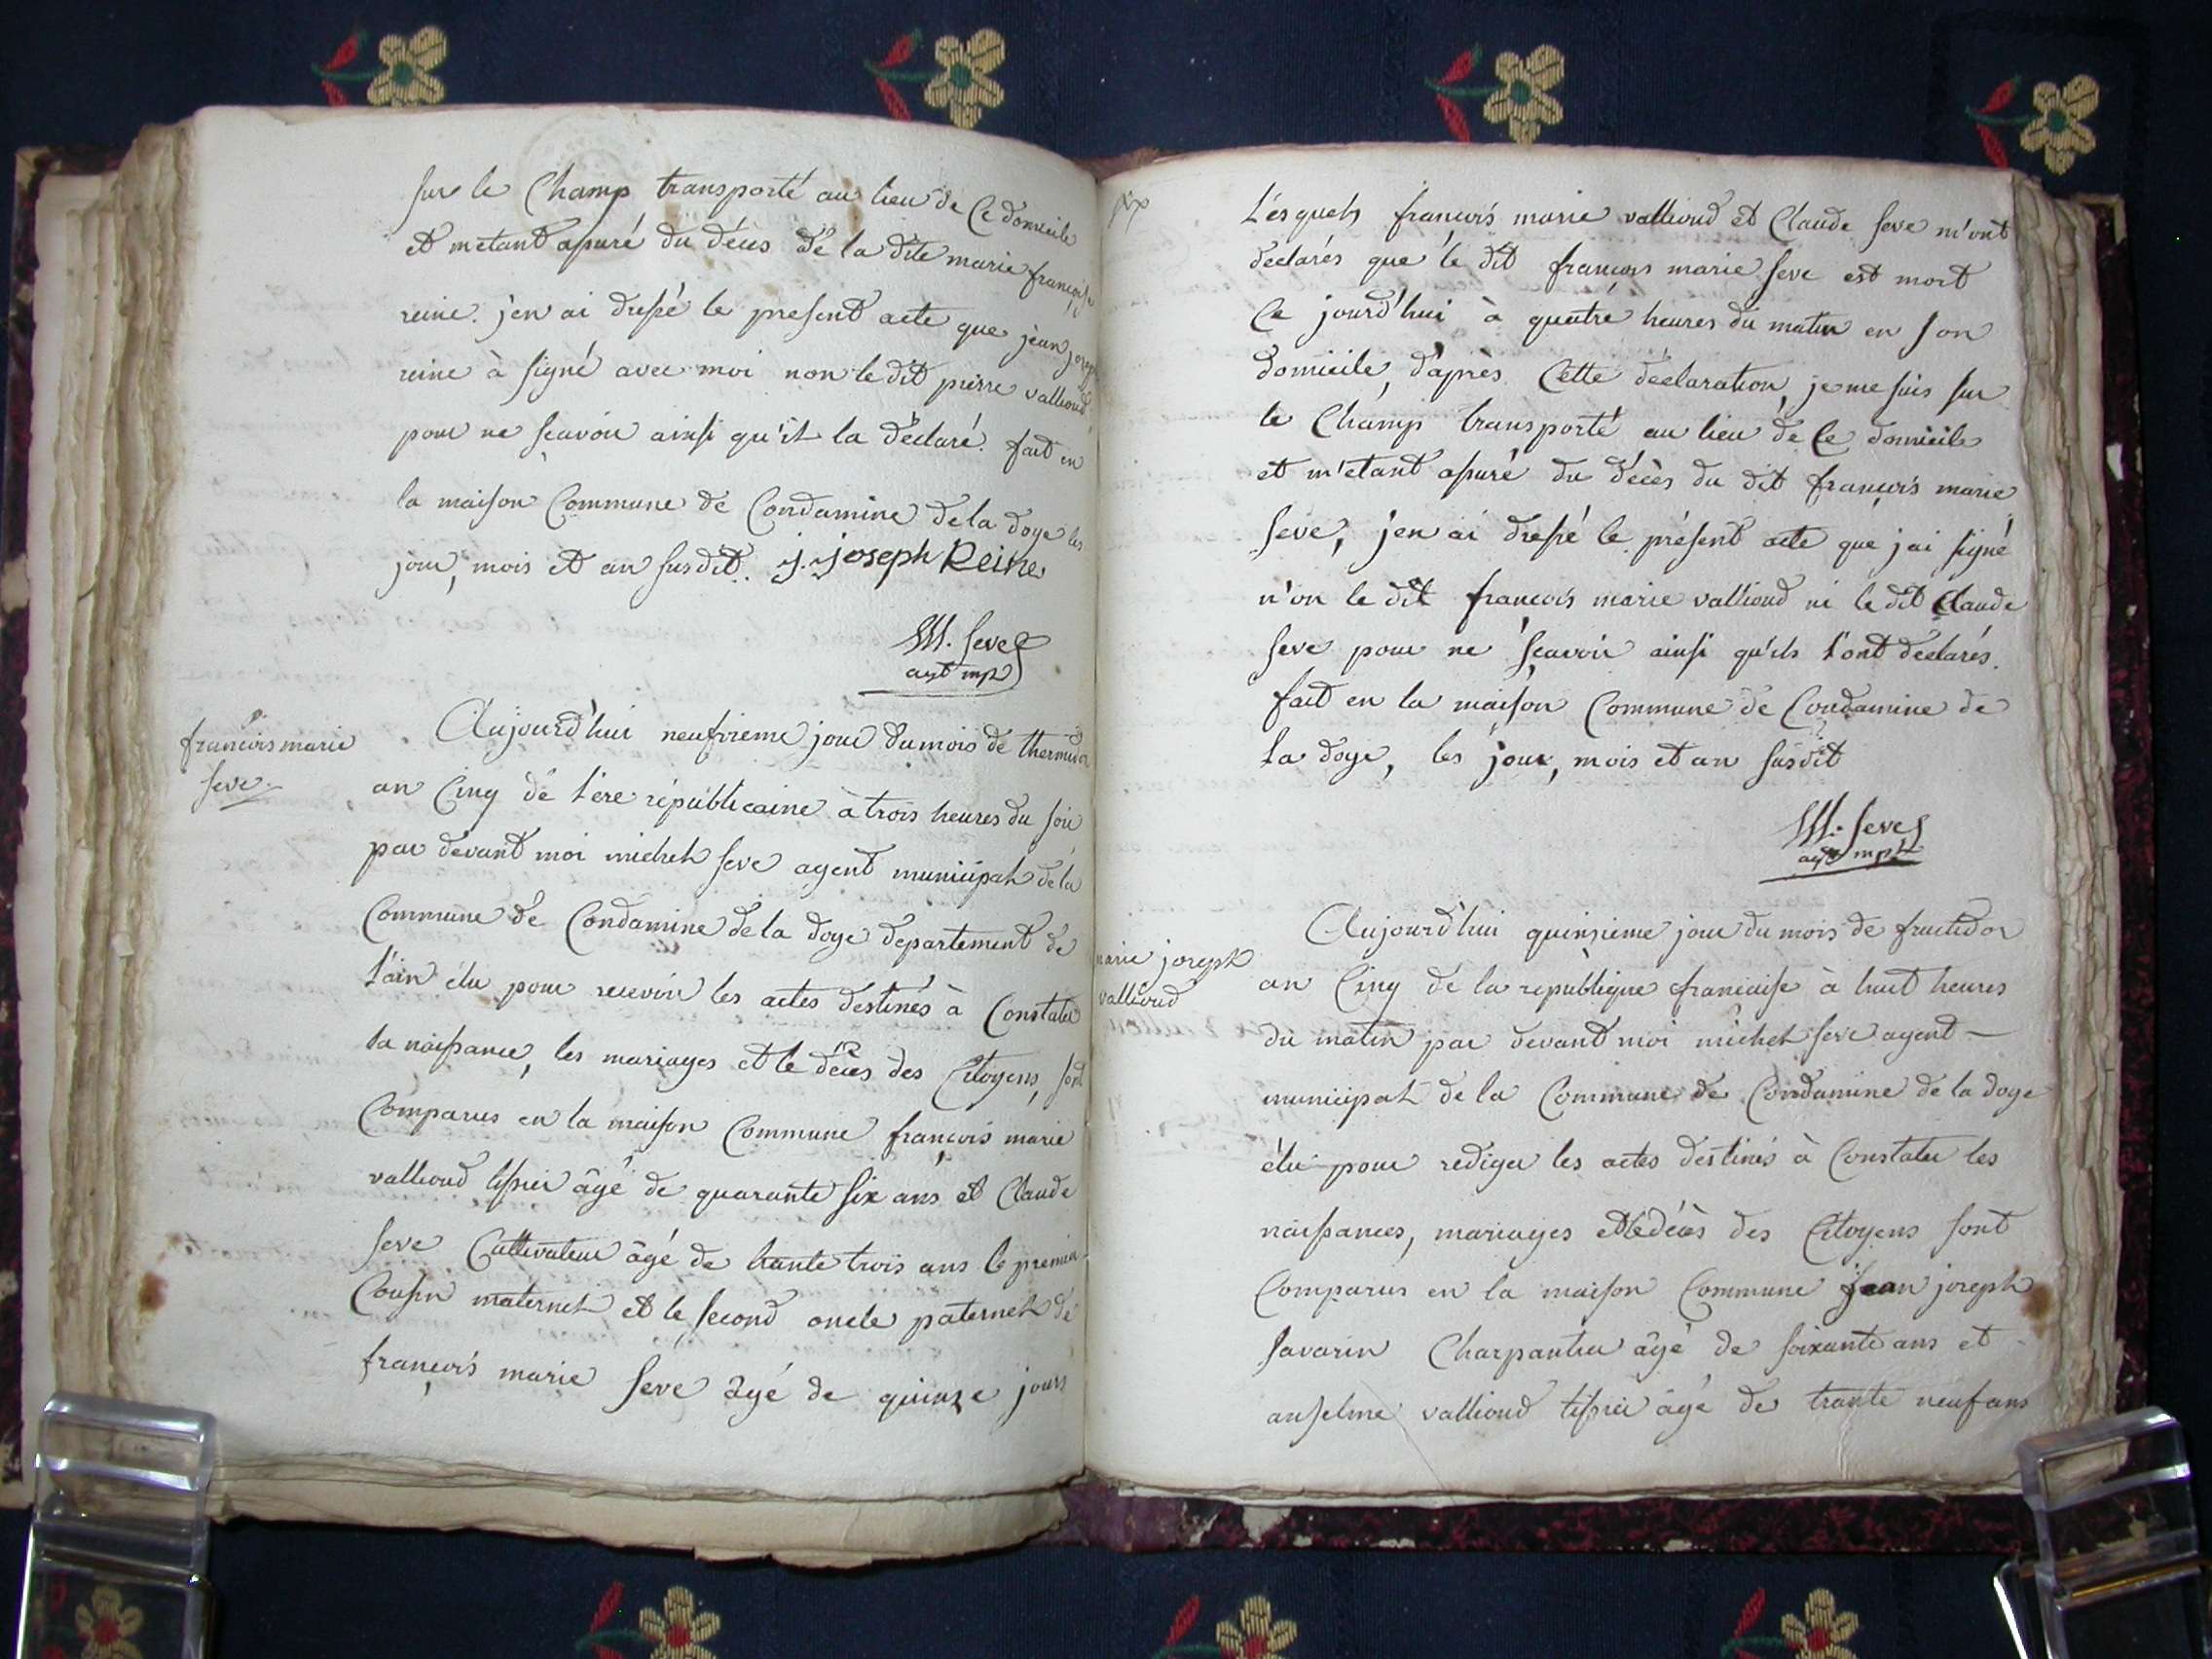 sur le Champ transporté au lieu de Ce domicile
et metant assuré du déces dé la dite marie françoise
reine. j'en ai dressé le present acte que jéan joseph
reine à signé avec moi non le dit pierre vallioud
pour ne scavoir ainsi qu'il la déclaré. fait en
la maison Commune de Condamine de la doye les
jour, mois et an susdit. j. joseph Reine
M. Seve
agt mpl
françois marie
seve
Aujourd'hui neufvieme jour du mois de thermidor
an Cinq dé l'ére républicaine à trois heures du soir
par devant moi michel seve agent municipal dé la
Commune dé Condamine de la doye departement de
l'ain élu pour recevoir les actes destinés à Constater
la naissance, les mariages et le déces des Citoyens, sont
Comparus en la maison Commune françois marie
vallioud tissier âgé de quarante six ans et Claude
seve Cultivateur âgé de trante trois ans le premier
Cousin maternel et le second oncle paternel de
françois marie seve âgé de quinze jours
Lésquels françois marie vallioud et Claude seve m'ont
déclarés que lé dit françois marie seve est mort
Ce jourd'hui à quatre heures du matin en son
domicile, d'après Cette déclaration, je me suis sur
le Champ transporté au lieu dé Ce domicile
et m'etant assuré du décès du dit françois marie
seve, j'en ai dressé le présent acte que j'ai signé
n'on le dit francois marie vallioud ni le dit Claude
seve pour ne scavoir ainsi qu'ils l'ont déclarés.
fait en la maison Commune de Condamine de
la doye, les jour, mois et an susdit
M. Seve
agt mpl
marie joseph
vallioud
Aujourd'hui quinzieme jour du mois de fructidor
an Cinq dé la républiqué francaise à huit heures
du matin par devant moi michel seve agent
municipal de la Commune de Condamine de la doye
élu pour rediger les actes destinés à Constater les
naissances, mariages et le décès des Citoyens sont
Comparus en la maison Commune jean joseph
savarin Charpantier âgé de soixante ans et
anselme vallioud tissier âgé de trante neuf ans